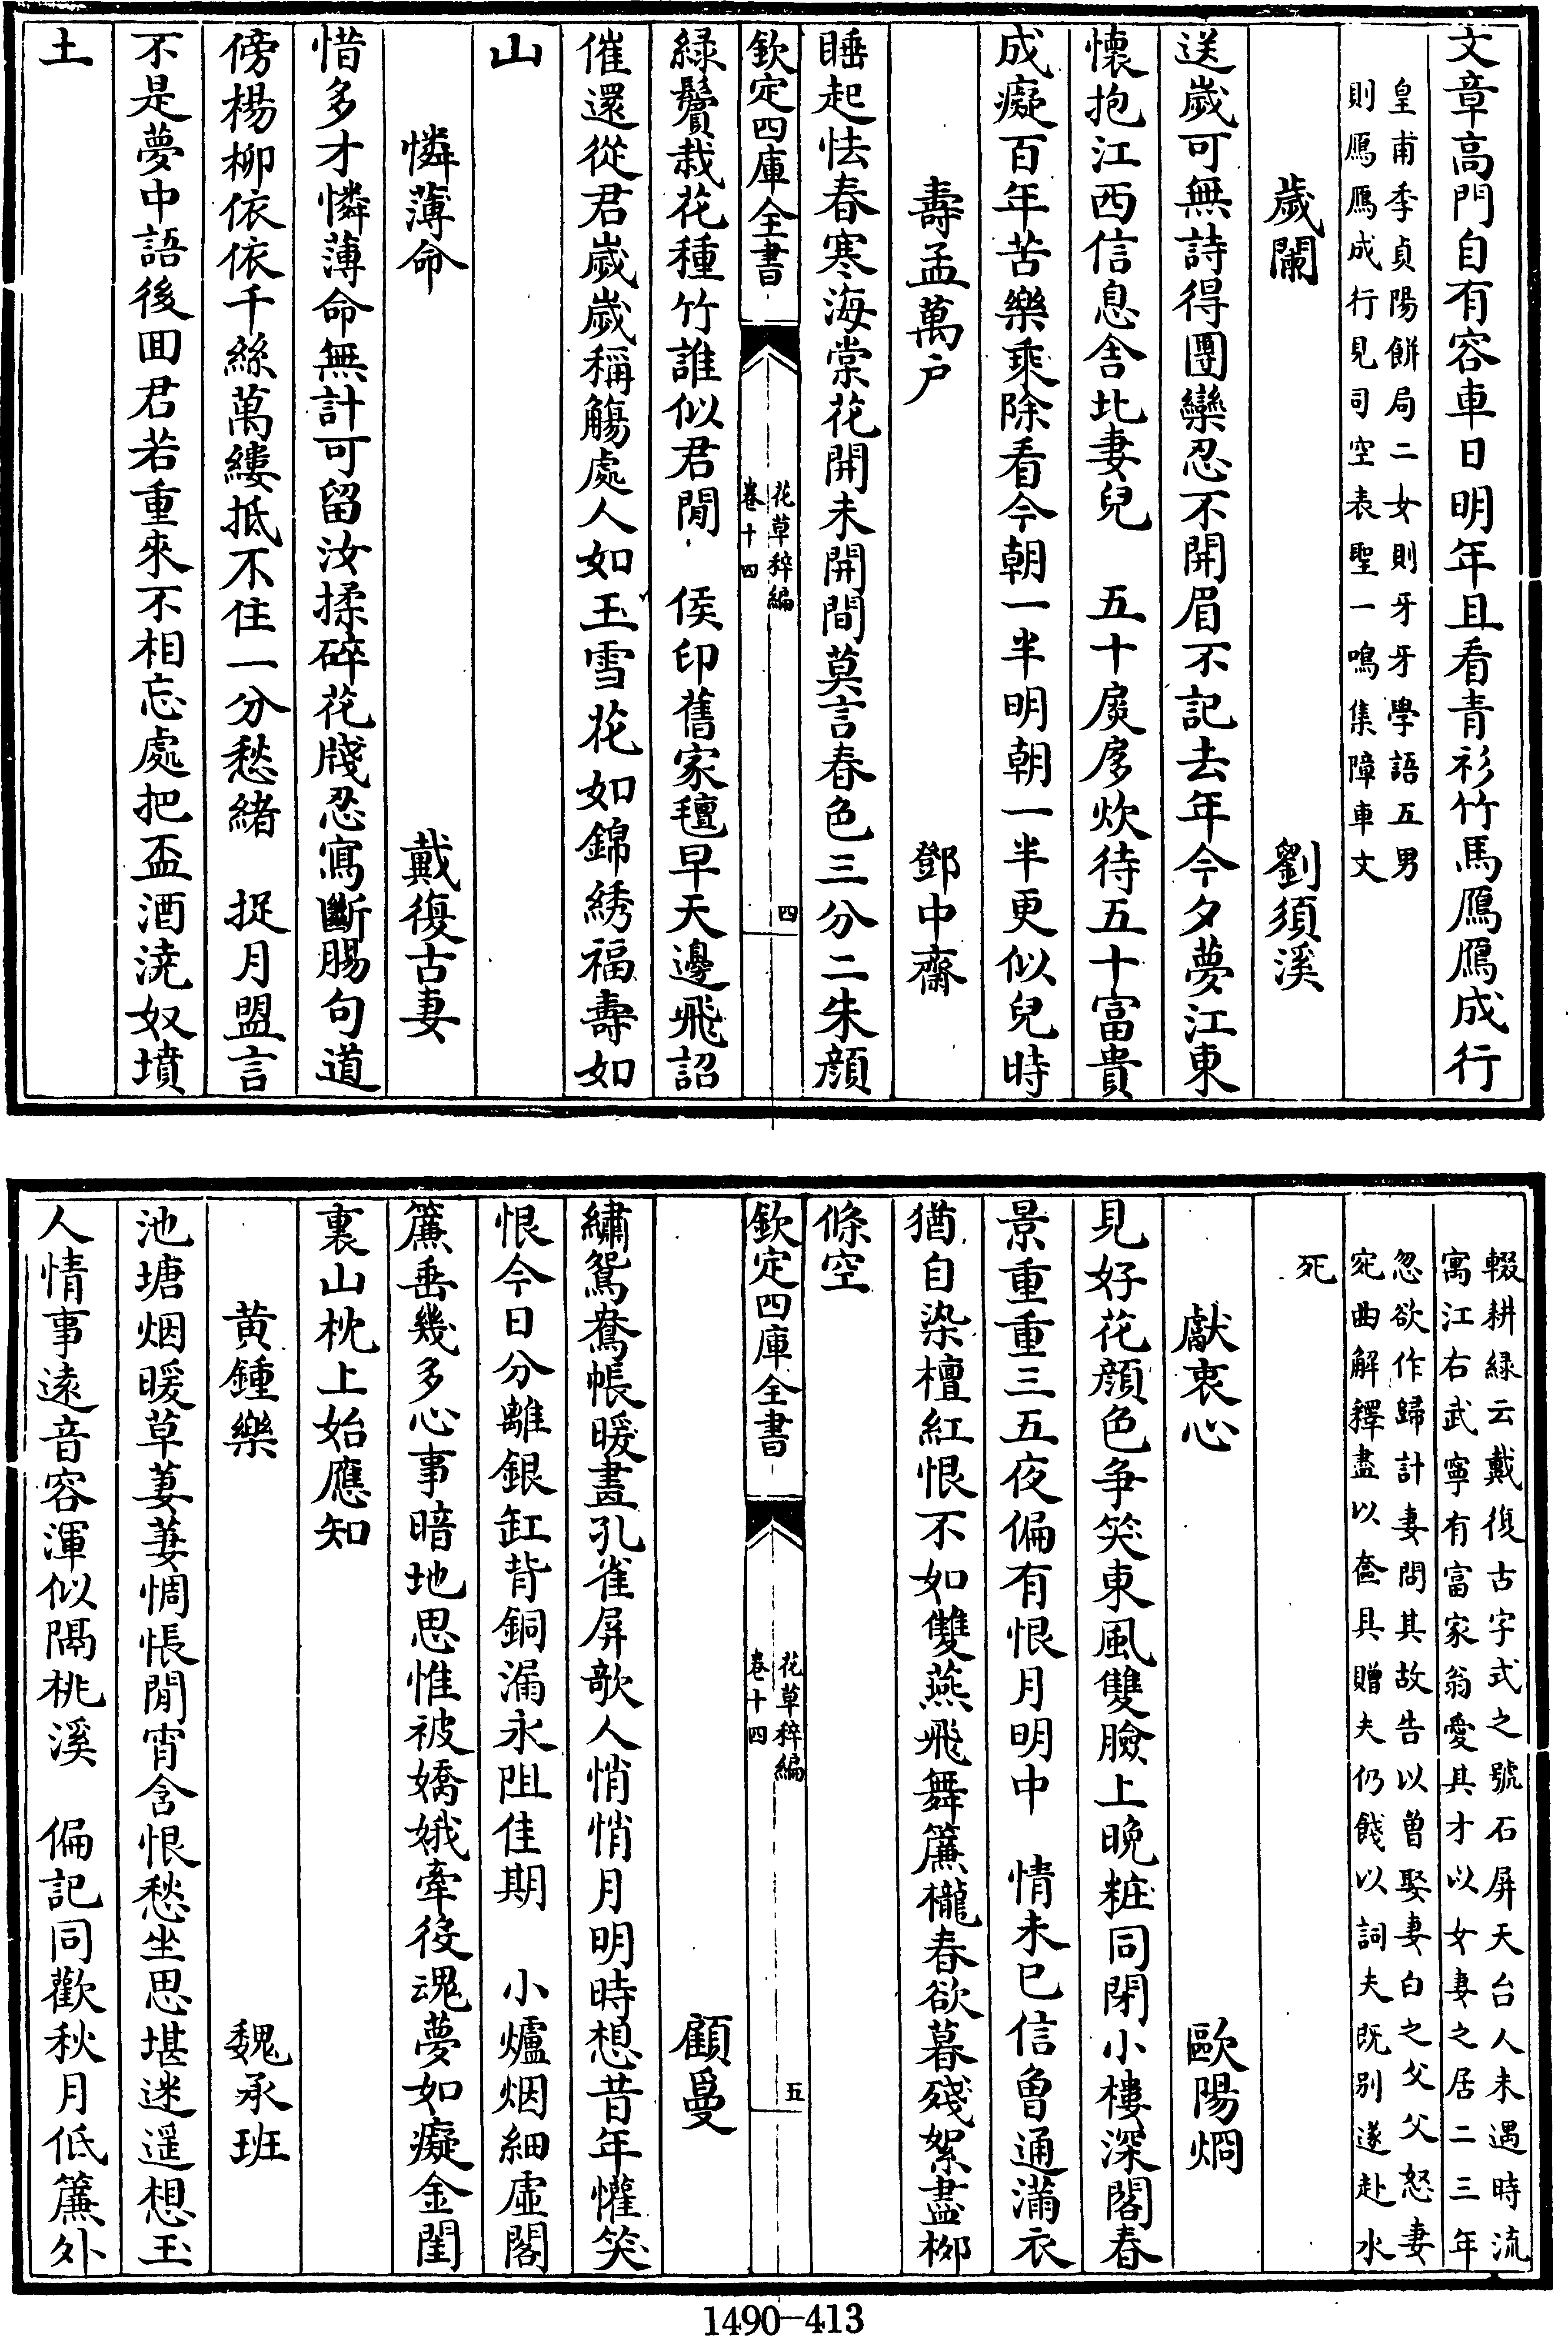 文章高門自有容車日明年且看青衫竹馬鴈鴈成行
皇甫季貞陽餅局二女則牙牙學語五男
則鴈鴈成行見司空表聖一鳴集障車文
歲闌　劉須溪
送歲可無詩得團欒忍不開眉不記去年今夕夢江東
懷抱江西信息舍北妻兒　五十扊扅炊待五十富貴
成癡百年苦樂乘除看今朝一半明朝一半更似兒時
壽孟萬户　鄧中齋
睡起怯春寒海棠花開未開間莫言春色三分二朱顔
緑鬢栽花種竹誰似君閒　侯印舊家氊早天邊飛詔
催還從君歲歲稱觴處人如玉雪花如錦綉福壽如
山
憐薄命　戴復古妻
惜多才憐薄命無計可留汝揉碎花牋忍寫斷腸句道
傍楊柳依依千絲萬縷抵不住一分愁緒　捉月盟言
不是夢中語後囬君若重來不相忘處把盃酒澆奴墳
土
欽定四庫全書　花草稡編　卷十四　四
輟耕緑云戴復古字式之號石屏天台人未遇時流
寓江右武寧有富家翁愛其才以女妻之居二三年
忽欲作歸計妻問其故告以曾娶妻白之父父怒妻
宛曲解釋盡以奩具贈夫仍餞以詞夫既别遂赴水
死
獻衷心　歐陽烱
見好花顔色争笑東風雙臉上晩粧同閉小樓深閣春
景重重三五夜偏有恨月明中　情未已信曾通滿衣
猶自染檀紅恨不如雙燕飛舞簾櫳春欲暮殘絮盡栁
條空
顧敻
繡鴛鴦帳暖畫孔雀屏欹人悄悄月明時想昔年懽笑
恨今日分離銀缸背銅漏永阻佳期　小爐烟細虚閣
簾垂幾多心事暗地思惟被嬌娥牽役魂夢如癡金閨
裏山枕上始應知
黄鍾樂　魏承班
池塘烟暖草萋萋惆悵閒宵含恨愁坐思堪迷遥想玉
人情事遠音容渾似隔桃溪　偏記同歡秋月低簾外
欽定四庫全書　花草稡編　卷十四　五
1490-413